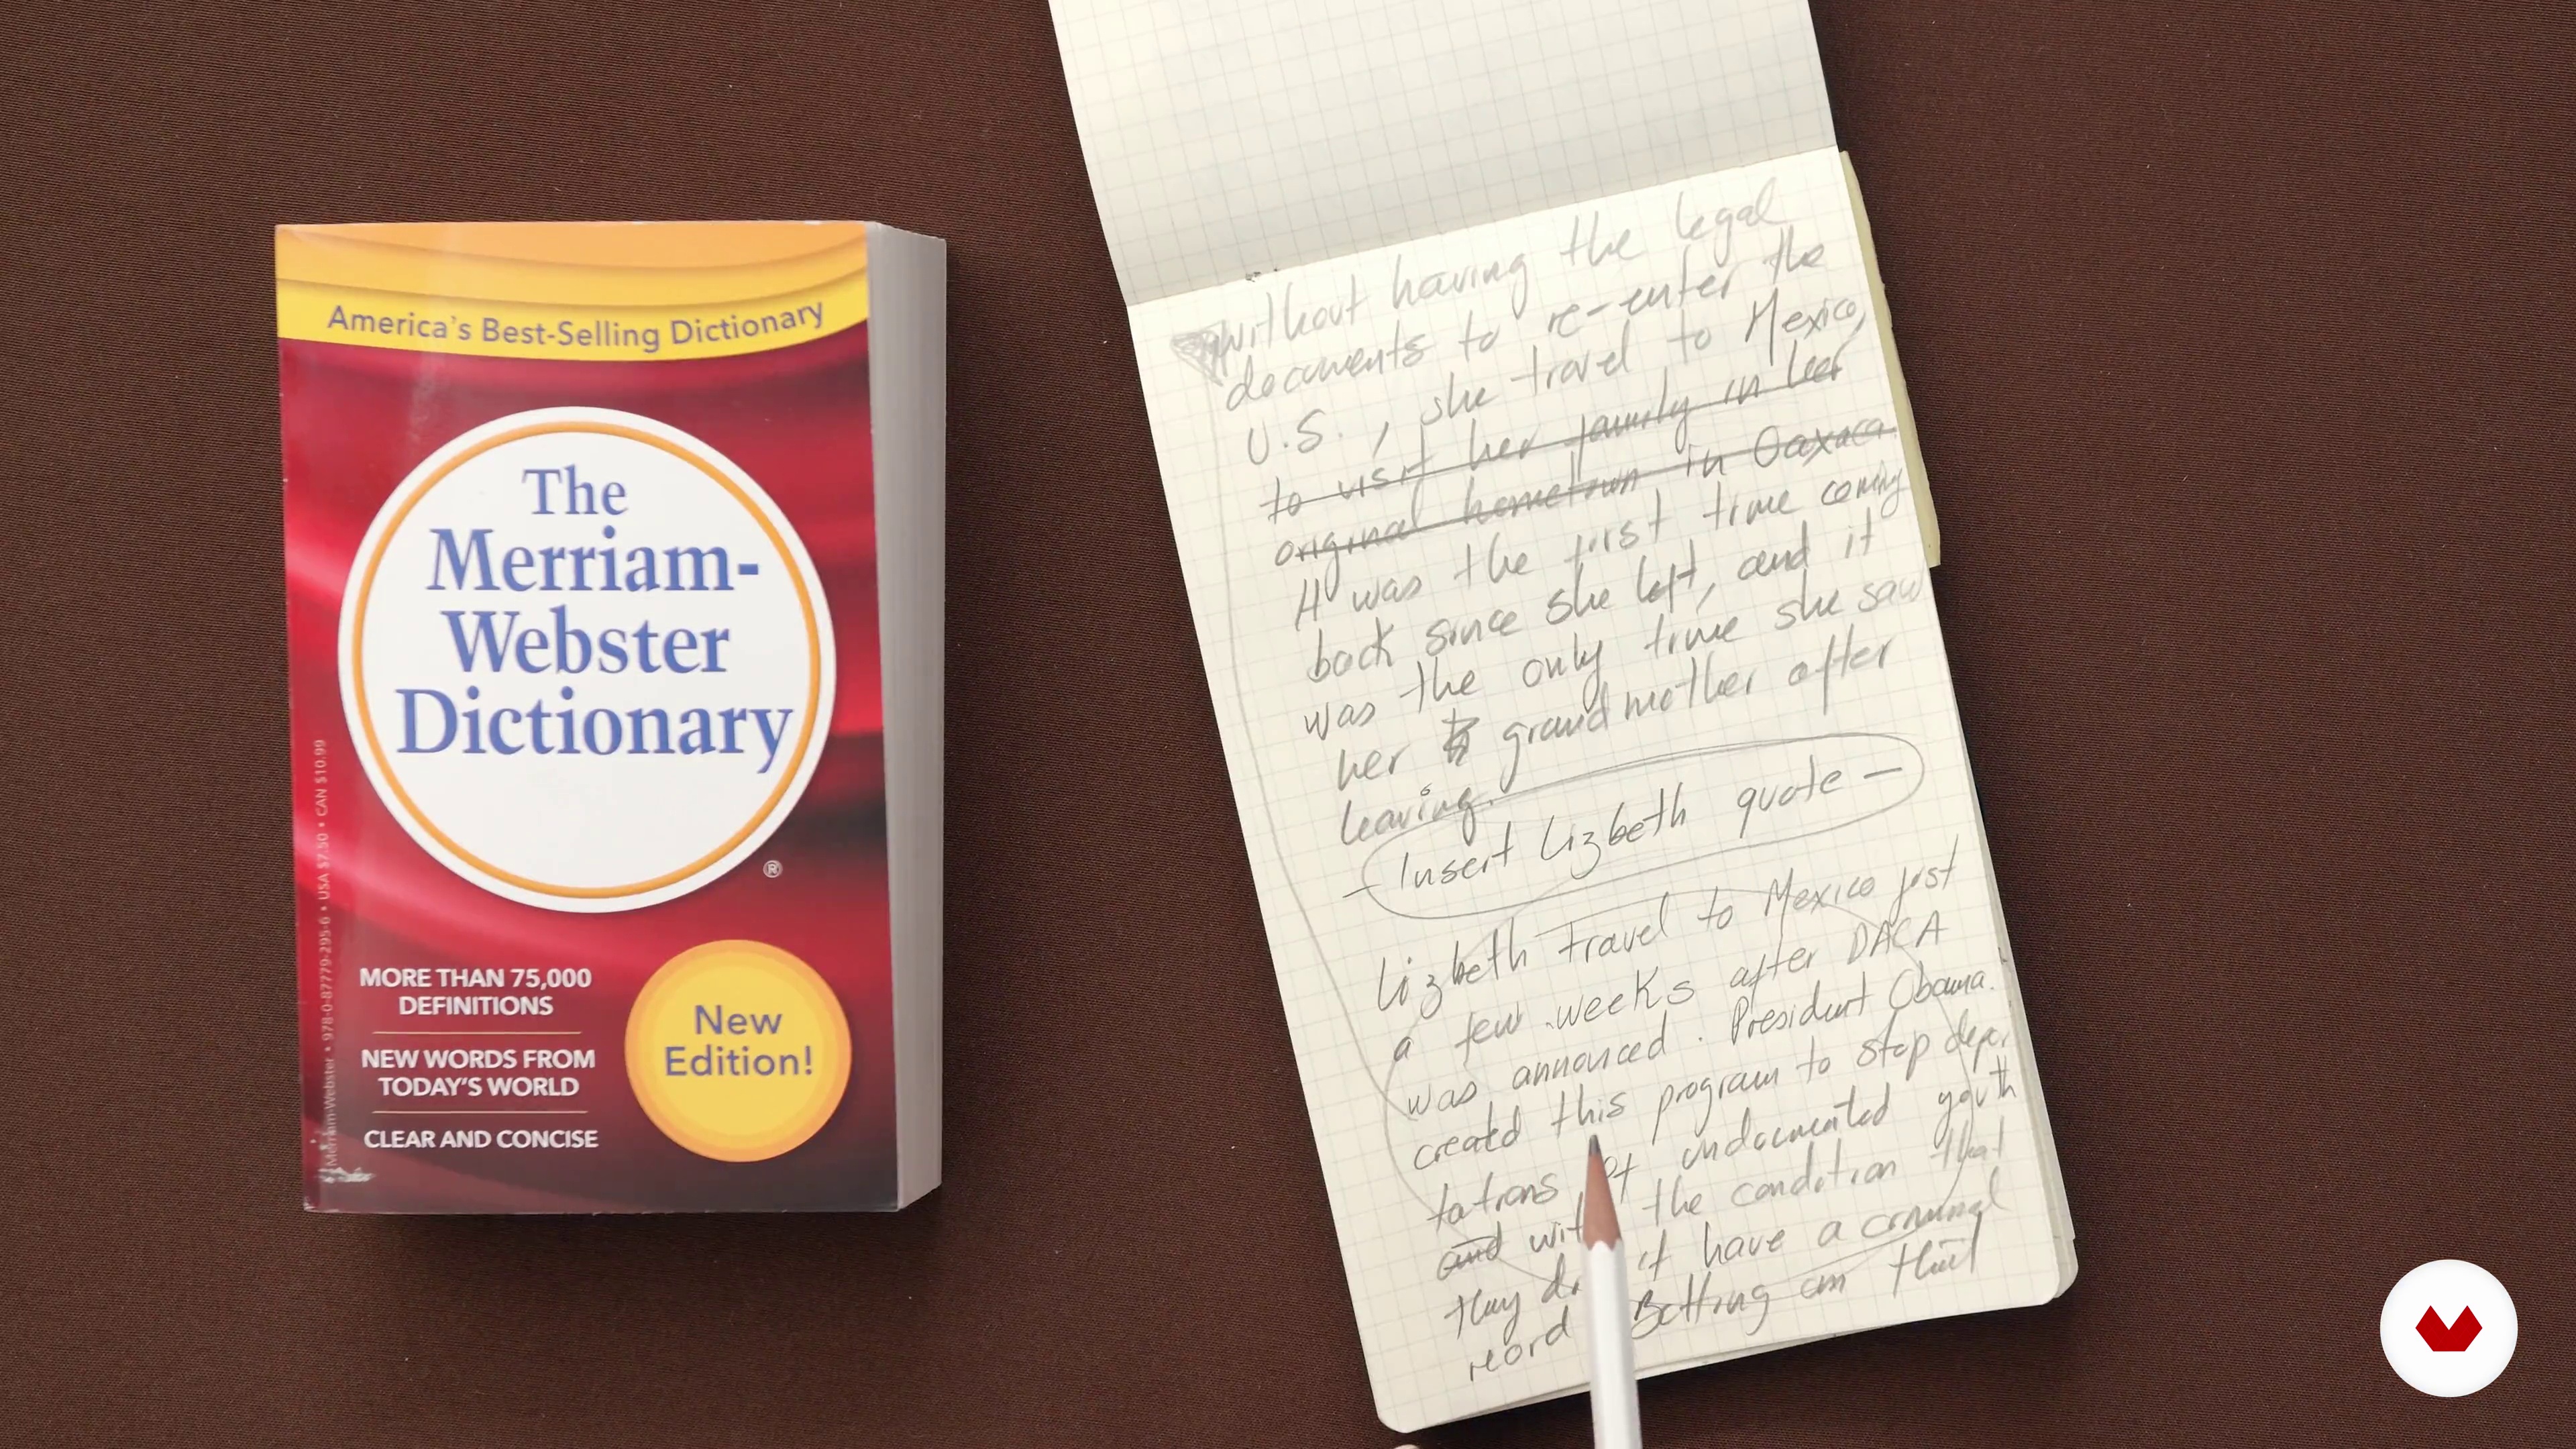 America's Best-Selling Dictionary
The
Merriam-
Webster
Dictionary
®
MORE THAN 75,000
DEFINITIONS
NEW WORDS FROM
TODAY'S WORLD
CLEAR AND CONCISE
New
Edition!
Merriam-Webster • 978-0-87779-295-6 • USA $7.50 • CAN $10.99
without having the legal
documents to re-enter the
U.S., she travel to Mexico,
to visit her family in her
original hometown in Oaxaca.
It was the first time coming
back since she left, and it
was the only time she saw
her grandmother after
leaving.
- Insert Lizbeth quote -
Lizbeth travel to Mexico just
a few weeks after DACA
was announced. President Obama
created this program to stop depor
tations of undocumented youth
and with the condition that
they have a criminal
record Betting on that